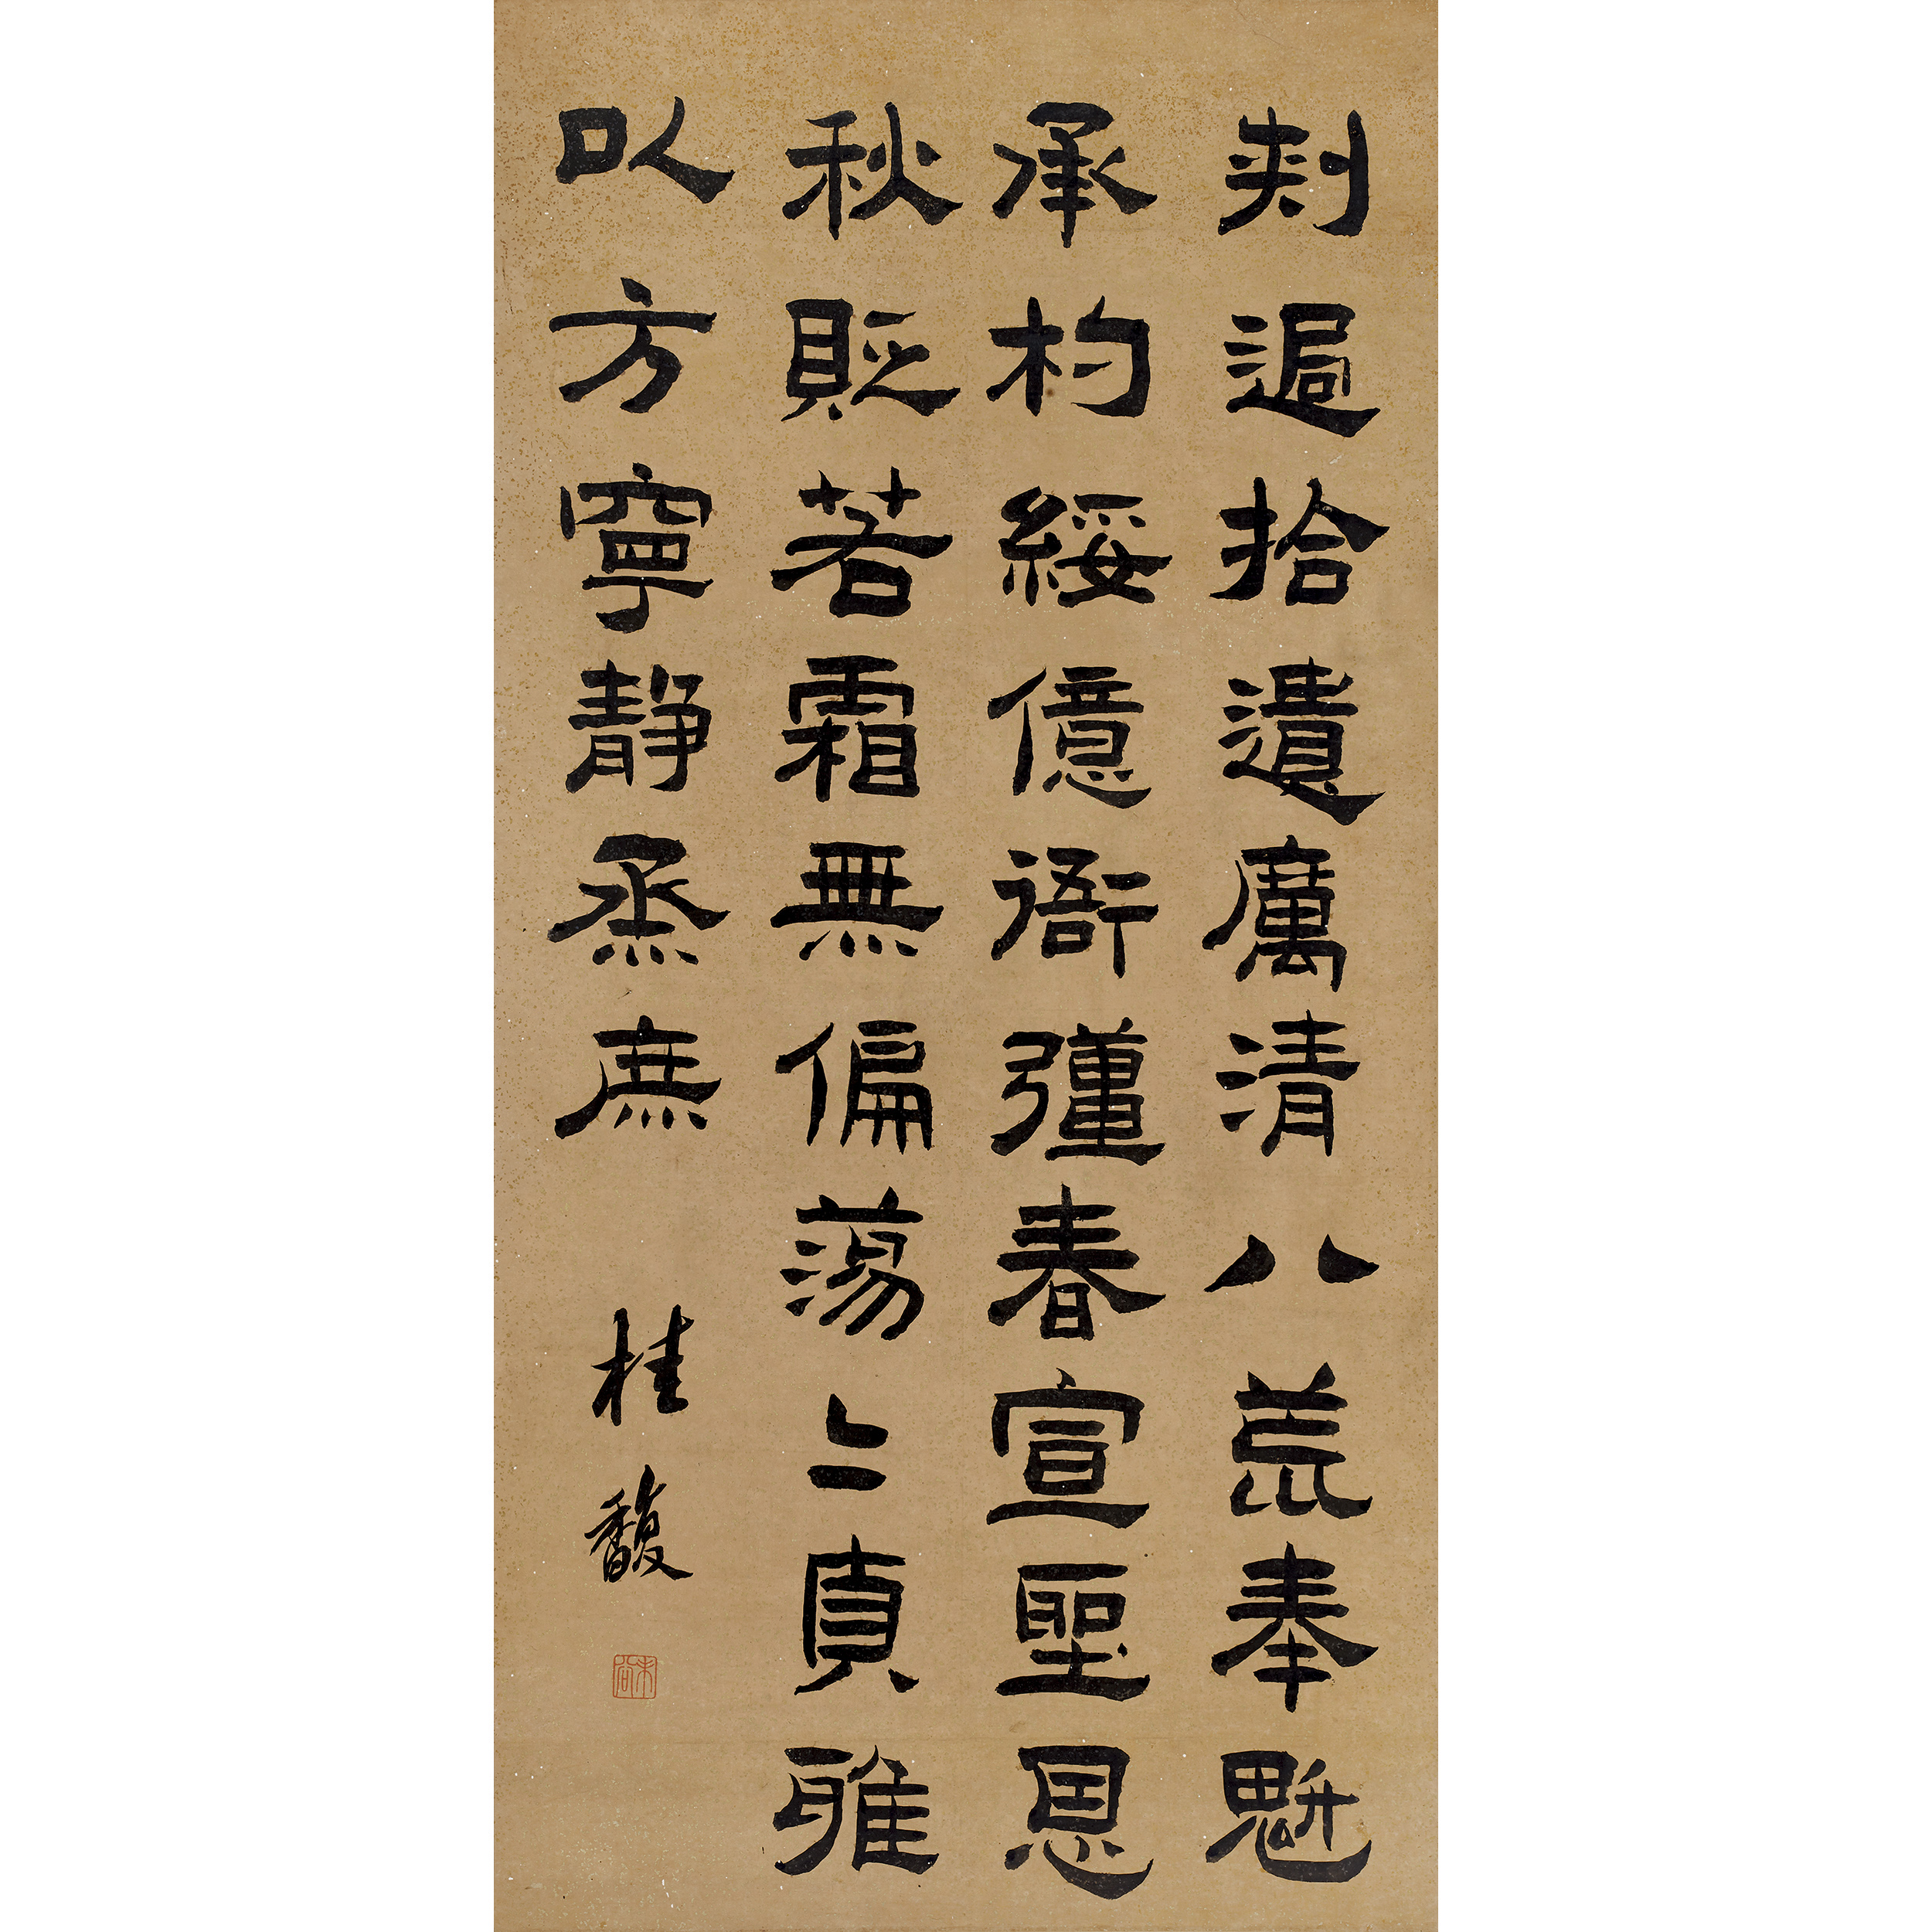 刾過拾遺厲清八荒奉魁
承杓綏億衙彊春宣聖恩
秋貶若霜無偏蕩〻貞雅
以方寧靜烝庶 桂馥
未谷